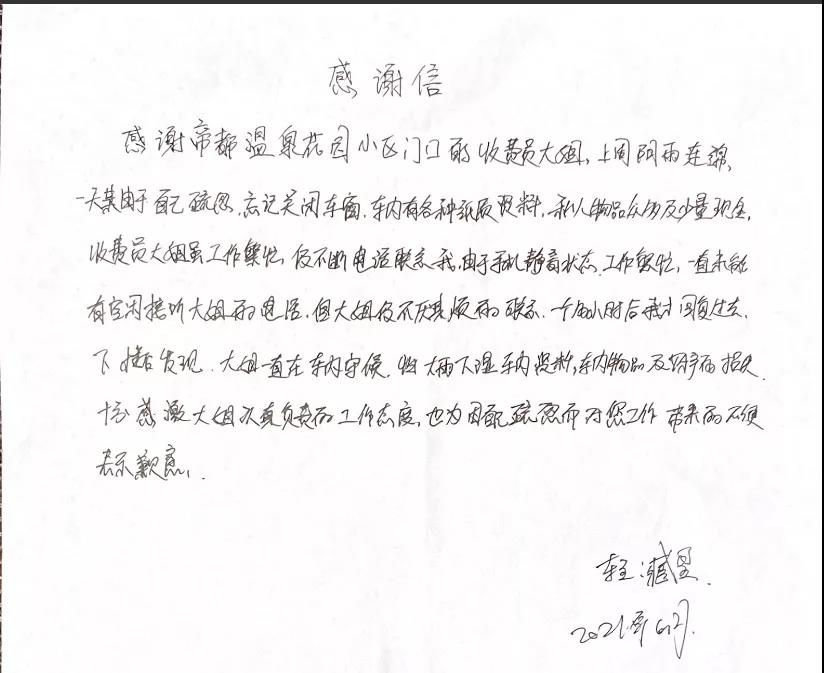 感谢信
感谢帝都温泉花园小区门口的收费员大姐，上周阴雨连绵，
一天某由于自己疏忽，忘记关闭车窗，车内有各种纸质资料，私人物品众多及少量现金，
收费员大姐虽工作繁忙，仍不断电话联系我，由于手机静音状态，工作繁忙，一直未能
有空闲接听大姐的电话，但大姐仍不厌其烦的联系，一个多小时后我才回复过去，
下楼后发现，大姐一直在车内守候，怕大雨下湿车内资料，车内物品及财产的损失
十分感激大姐认真负责的工作态度，也为因自己疏忽而对您工作带来的不便
表示歉意，.
车主：
2021年6月.